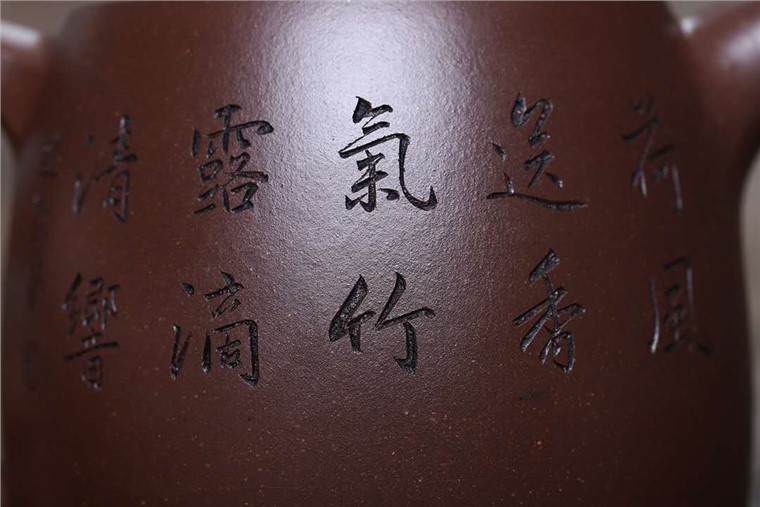 荷風
送香
氣竹
露滴
清響